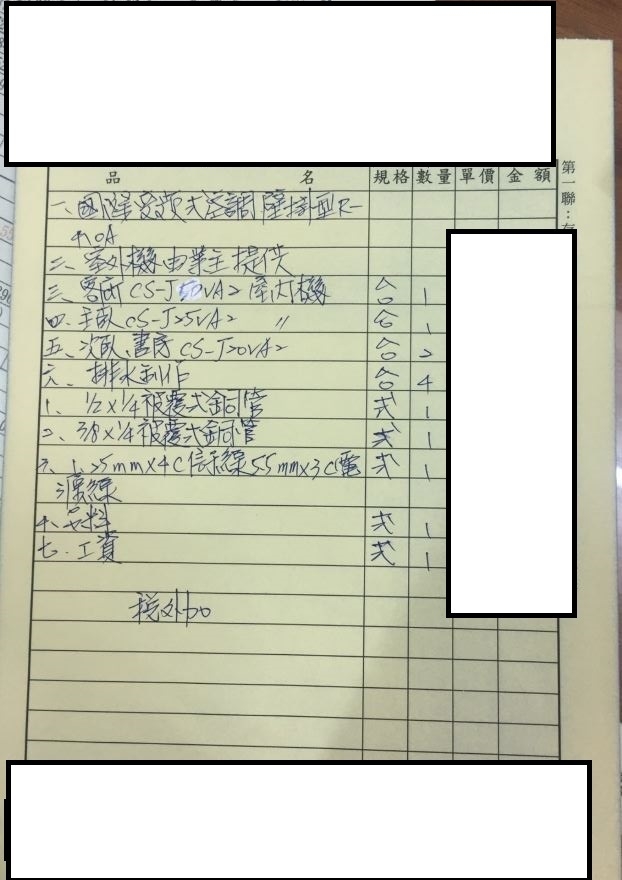 品名 規格 數量 單價 金額
第一聯：
一、國際變頻式空調壁掛型R-
410A
二、室外機由業主提供
三、客廳CS-J50VA2室內機 台 1
四、主臥CS-J25VA2 〃 台 1
五、次臥、書房CS-J20VA2 台 2
六、排水制作 台 4
1、1/2×1/4被覆式銅管 式 1
2、3/8×1/4被覆式銅管 式 1
3、1.25mm×4C信號線5.5mm×3C電 式 1
源線
4、另料 式 1
七、工資 式 1
稅外加